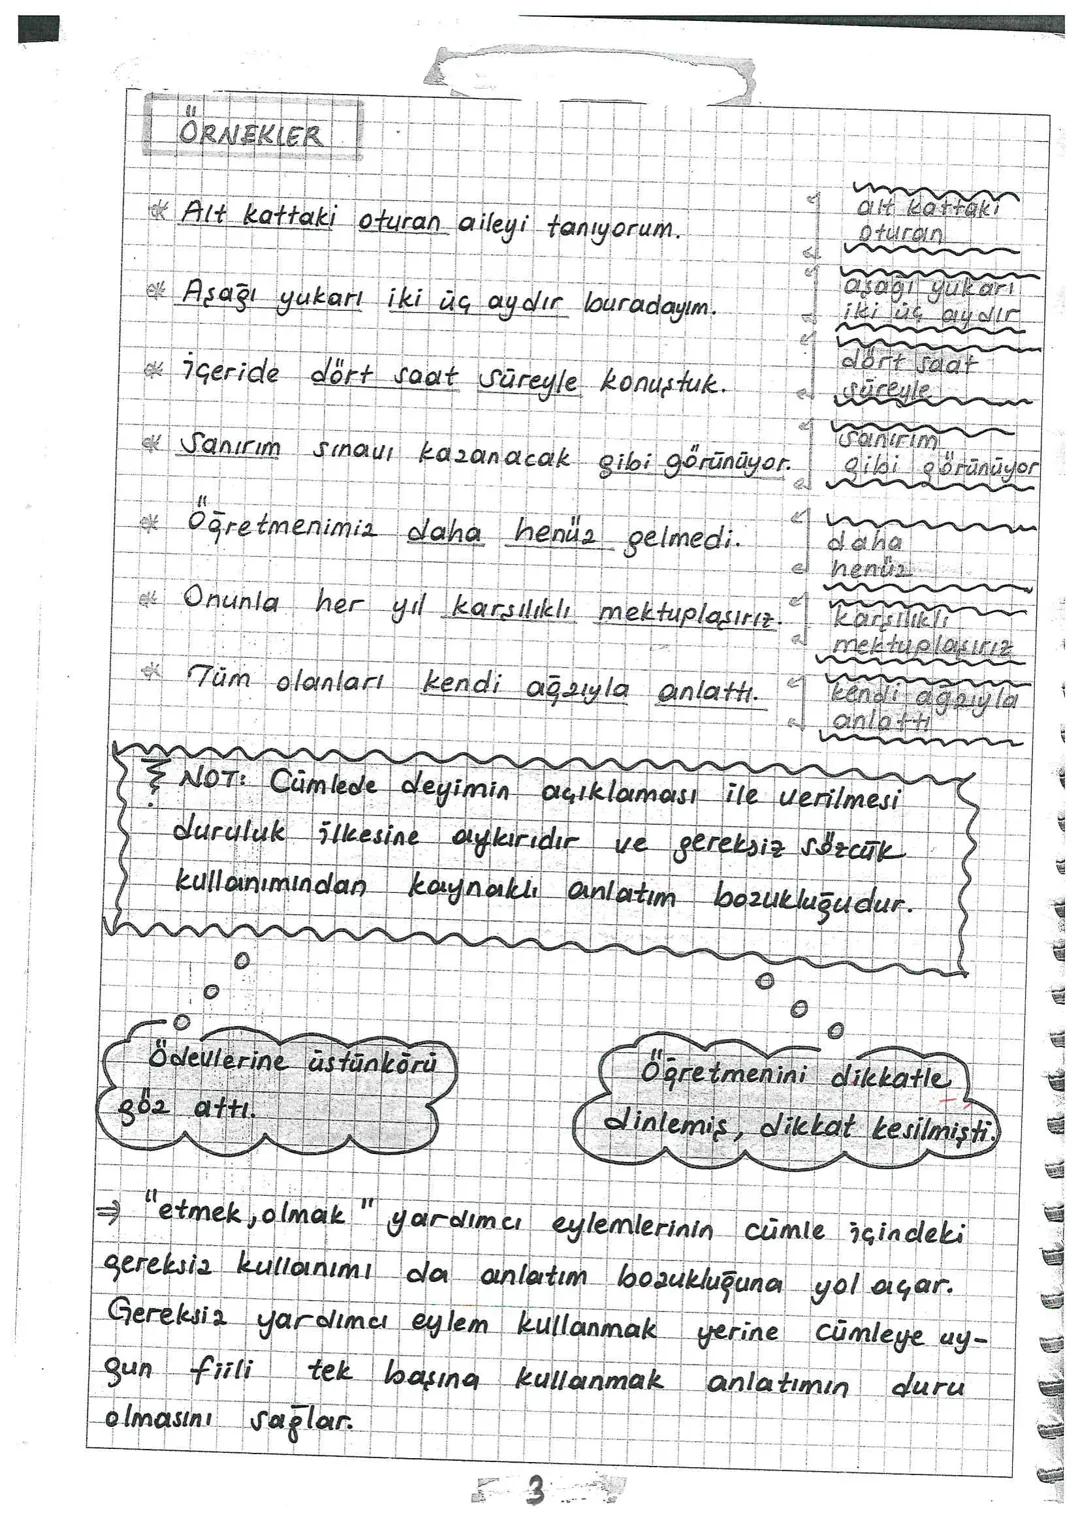 ÖRNEKLER
* Alt kattaki oturan aileyi tanıyorum.
alt kattaki
oturan
* Aşağı yukarı iki üç aydır buradayım.
aşağı yukarı
iki üç aydır
* içeride dört saat süreyle konuştuk.
dört saat
süreyle
* Sanırım sınavı kazanacak gibi görünüyor.
sanırım
gibi görünüyor
* Öğretmenimiz daha henüz gelmedi.
daha
henüz
* Onunla her yıl karşılıklı mektuplaşırız.
karşılıklı
mektuplaşırız
* Tüm olanları kendi ağzıyla anlattı.
kendi ağzıyla
anlattı
NOT: Cümlede deyimin açıklaması ile verilmesi
duruluk ilkesine aykırıdır ve gereksiz sözcük
kullanımından kaynaklı anlatım bozukluğudur.
Ödevlerine üstünkörü
göz attı.
Öğretmenini dikkatle
dinlemiş, dikkat kesilmişti.
⇒ "etmek, olmak" yardımcı eylemlerinin cümle içindeki
gereksiz kullanımı da anlatım bozukluğuna yol açar.
Gereksiz yardımcı eylem kullanmak yerine cümleye uy-
gun fiili tek başına kullanmak anlatımın duru
olmasını sağlar.
3